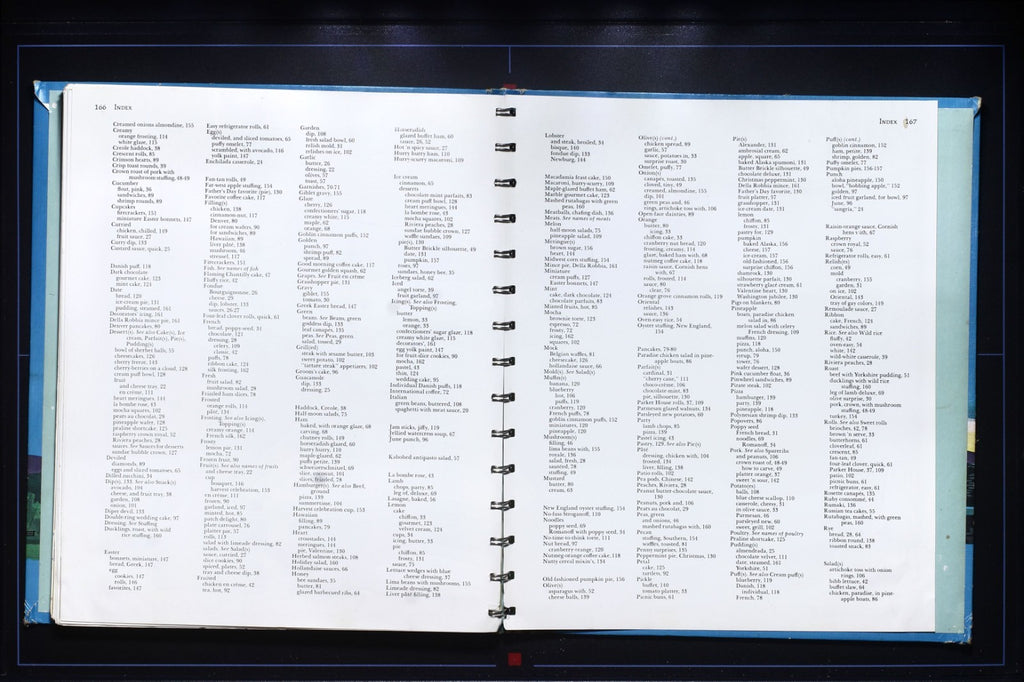 166 INDEX
Creamed onions almondine, 155
Creamy
orange frosting, 114
white glaze, 115
Creole haddock, 38
Crescent rolls, 85
Crimson hearts, 89
Crisp toast rounds, 39
Crown roast of pork with
mushroom stuffing, 48-49
Cucumber
flour, pink, 36
sandwiches, 89
shrimp rounds, 89
Cupcakes
firecrackers, 151
miniature Easter bonnets, 147
Curried
chicken, chilled, 149
fruit sauce, 27
Curry dip, 133
Custard sauce, quick, 25
Danish puff, 118
Dark chocolate
gourmet cake, 123
mint cake, 123
Date
bread, 120
ice-cream pie, 131
pudding, steamed, 161
Decorators' icing, 161
Della Robbia mince pie, 161
Denver pancakes, 80
Dessert(s). See also Cake(s), Ice
cream, Parfait(s), Pie(s),
Pudding(s)
bowl of sherbet balls, 55
cheesecakes, 126
cherry freeze, 143
cherry-berries on a cloud, 128
cream puff bowl, 128
fruit
and cheese tray, 22
en crème, 111
heart meringues, 144
la bombe rose, 43
mocha squares, 102
pears au chocolat, 29
pineapple wafer, 128
praline shortcake, 125
raspberry crown tonal, 52
Riviera peaches, 28
sauces. See Sauces for desserts
sundae bubble crown, 127
Deviled
diamonds, 89
eggs and sliced tomatoes, 65
Dilled zucchini, 34
Dip(s), 133. See also Snack(s)
avocado, 101
cheese, and fruit tray, 38
garden, 108
onion, 101
Diper devil, 133
Double-ring wedding cake, 97
Dressing. See Stuffing
Ducklings, roast, with wild
rice stuffing, 160
Easter
bonnets, miniature, 147
bread, Greek, 147
egg
cookies, 147
rolls, 146
favorites, 147
Easy refrigerator rolls, 61
Egg(s)
deviled, and sliced tomatoes, 65
puffy omelet, 77
scrambled, with avocado, 146
yolk paint, 147
Enchilada casserole, 24
Fan-tan rolls, 49
Far-west apple stuffing, 154
Father's Day favorite (pie), 130
Favorite coffee cake, 117
Filling(s)
chicken, 138
cinnamon-nut, 117
Denver, 80
for cream wafers, 90
for sandwiches, 89
Hawaiian, 89
liver pâté, 138
mushroom, 46
streusel, 117
Firecrackers, 151
Fish. See names of fish
Flaming Chantilly cake, 47
Fluffy rice, 42
Fondue
Bourguignonne, 26
cheese, 29
dip, lobster, 133
sauces, 26-27
Four-leaf clover rolls, quick, 61
French
bread, poppy-seed, 31
chocolate, 121
dressing, 28
celery, 109
classic, 42
puffs, 78
ribbon cake, 123
silk frosting, 162
Fresh
fruit salad, 82
mushroom salad, 28
Frizzled ham slices, 78
Frosted
orange rolls, 114
pâté, 134
Frosting. See also Icing(s),
Topping(s)
creamy orange, 114
French silk, 162
Frosty
lemon pie, 131
mocha, 72
Frozen fruit, 90
Fruit(s). See also names of fruits
and cheese tray, 22
cup
bouquet, 146
harvest celebration, 153
en crème, 111
frozen, 90
garland, iced, 97
minted, hot, 85
patch delight, 80
plate carrousel, 76
platter pat, 57
rolls, 113
salad with limeade dressing, 82
salads. See Salad(s)
sauce, curried, 27
slice cookies, 90
spiced, plates, 52
tray and cheese dip, 38
Fruited
chicken en crème, 42
tea, hot, 92
Garden
dip, 108
fresh salad bowl, 60
relish mold, 31
relishes on ice, 102
Garlic
butter, 26
dressing, 22
olives, 57
toast, 57
Garnishes, 70-71
Giblet gravy, 155
Glaze
cherry, 126
confectioners' sugar, 118
creamy white, 115
maple, 62
orange, 68
Goblin cinnamon puffs, 152
Golden
punch, 97
shrimp puff, 82
spread, 89
Good morning coffee cake, 117
Gourmet golden squash, 62
Grapes. See Fruit en crème
Grasshopper pie, 131
Gravy
giblet, 155
tomato, 30
Greek Easter bread, 147
Green
beans. See Beans, green
goddess dip, 133
leaf canapés, 135
peas. See Peas, green
salad, tossed, 29
Grill(ed)
steak with sesame butter, 103
sweet potato, 102
"tartare steak" appetizers, 102
Groom's cake, 96
Guacamole
dip, 133
dressing, 25
Haddock, Creole, 38
Half-moon salads, 75
Ham
baked, with orange glaze, 68
carving, 68
chutney rolls, 149
horseradish-glazed, 60
hurry hurry, 110
maple-glazed, 62
puffs perize, 139
schweizerschnitzel, 69
slice, unusual, 104
slices, frizzled, 78
Hamburger(s). See also Beef,
ground
pizza, 139
sommerset, 104
Harvest celebration cup, 153
Hawaiian
filling, 89
pancakes, 79
Heart
croustades, 144
meringues, 144
pie, Valentine, 130
Herbed salmon steaks, 108
Holiday salad, 160
Hollandaise sauces, 66
Honey
bee sundaes, 35
butter, 81
glazed barbecued ribs, 64
Horseradish
glazed buffet ham, 60
sauce, 26, 52
Hot 'n spicy sauce, 27
Hurry hurry ham, 110
Hurry-scurry macaroni, 109
Ice cream
cinnamon, 65
desserts
chocolate-mint parfait, 83
cream puff bowl, 128
heart meringues, 144
la bombe rose, 43
mocha squares, 102
Riviera peaches, 28
sundae bubble crown, 127
waffle sundaes, 109
pie(s), 130
Butter Brickle silhouette, 49
date, 131
pumpkin, 157
roses, 97
sundaes, honey bee, 35
Iceberg salad, 62
Iced
angel torte, 39
fruit garland, 97
Icing(s). See also Frosting,
Topping(s)
butter
lemon, 33
orange, 33
confectioners' sugar glaze, 118
creamy white glaze, 115
decorators', 161
egg yolk paint, 147
for fruit-slice cookies, 90
mocha, 102
pastel, 43
thin, 124
wedding cake, 95
Individual Danish puffs, 118
International coffee, 72
Italian
green beans, buttered, 108
spaghetti with meat sauce, 20
Jam sticks, jiffy, 119
Jellied watercress soup, 67
June punch, 96
Kabobed antipasto salad, 57
La bombe rose, 43
Lamb
chops, party, 85
leg of, deluxe, 69
Lasagne, baked, 56
Lemon
cake
chiffon, 33
gourmet, 123
velvet cream, 124
cups, 34
icing, butter, 33
pie
chiffon, 85
frosty, 131
sauce, 75
Lettuce wedges with blue
cheese dressing, 37
Lima beans with mushrooms, 155
Limeade dressing, 82
Liver pâté filling, 138
INDEX 167
Lobster
and steak, broiled, 34
bisque, 140
fondue dip, 133
Newburg, 144
Macadamia feast cake, 150
Macaroni, hurry-scurry, 109
Maple-glazed buffet ham, 62
Marble gourmet cake, 123
Mashed rutabagas with green
peas, 160
Meatballs, chafing dish, 136
Meats. See names of meats
Melon
half-moon salads, 75
pineapple salad, 109
Meringue(s)
brown sugar, 156
heart, 144
Midwest corn stuffing, 154
Mince pie, Della Robbia, 161
Miniature
cream puffs, 127
Easter bonnets, 147
Mint
cake, dark chocolate, 124
chocolate parfaits, 83
Minted fruits, hot, 85
Mocha
brownie torte, 123
espresso, 72
frosty, 72
icing, 162
squares, 102
Mock
Belgian waffles, 81
cheesecake, 126
hollandaise sauce, 66
Mold(s). See Salad(s)
Muffin(s)
banana, 120
blueberry
hot, 106
puffs, 119
cranberry, 120
French puffs, 78
goblin cinnamon puffs, 152
miniatures, 120
pineapple, 120
Mushroom(s)
filling, 46
lima beans with, 155
royale, 136
salad, fresh, 28
sauteed, 78
stuffing, 49
Mustard
butter, 80
cream, 63
New England oyster stuffing, 154
No-fuss Stroganoff, 110
Noodles
poppy seed, 69
Romanoff with poppy seed, 34
No-time-to-think torte, 111
Nut bread, 97
cranberry-orange, 120
Nutmeg-orange coffee cake, 118
Nutty cereal mixin's, 134
Old-fashioned pumpkin pie, 156
Olive(s)
asparagus with, 52
cheese balls, 139
Olive(s) (cont.)
chicken spread, 89
garlic, 57
sauce, potatoes in, 33
surprise roast, 30
Omelet, puffy, 77
Onion(s)
canapés, toasted, 135
cloved, tiny, 49
creamed, almondine, 155
dip, 101
green peas and, 46
rings, artichoke toss with, 106
Open-face dainties, 89
Orange
butter, 80
icing, 33
chiffon cake, 33
cranberry nut bread, 120
frosting, creamy, 114
glaze, baked ham with, 68
nutmeg coffee cake, 118
raisin sauce, Cornish hens
with, 67
rolls, frosted, 114
sauce, 80
clear, 76
Orange grove cinnamon rolls, 119
Oriental
relishes, 143
sauce, 136
Oven-easy rice, 54
Oyster stuffing, New England,
154
Pancakes, 79-80
Paradise chicken salad in pine-
apple boats, 86
Parfait(s)
cardinal, 31
"cherry cane," 111
choco-creme, 106
chocolate-mint, 83
pie, silhouette, 130
Parker House rolls, 37, 109
Parmesan glazed walnuts, 134
Parsleyed new potatoes, 60
Party
lamb chops, 85
pizza, 139
Pastel icing, 43
Pastry, 129. See also Pie(s)
Pâté
dressing, chicken with, 104
frosted, 134
liver, filling, 138
Patio rolls, 102
Pea pods, Chinese, 142
Peaches, Riviera, 28
Peanut butter chocolate sauce,
130
Peanuts, pork and, 106
Pears au chocolat, 29
Peas, green
and onions, 46
mashed rutabagas with, 160
Pecan
stuffing, Southern, 154
waffles, toasted, 81
Penny surprises, 135
Peppermint pie, Christmas, 130
Petal
cake, 125
tartlets, 92
Pickle
buffet, 140
tomato platter, 33
Picnic buns, 61
Pie(s)
Alexander, 131
ambrosial cream, 62
apple, square, 65
baked Alaska spumoni, 131
Butter Brickle silhouette, 49
chocolate deluxe, 131
Christmas peppermint, 130
Della Robbia mince, 161
Father's Day favorite, 130
fruit platter, 57
grasshopper, 131
ice-cream date, 131
lemon
chiffon, 85
frosty, 131
pastry for, 129
pumpkin
baked Alaska, 156
cheese, 157
ice-cream, 157
old-fashioned, 156
surprise chiffon, 156
shamrock, 130
silhouette parfait, 130
strawberry glacé cream, 61
Valentine heart, 130
Washington jubilee, 130
Pigs-in-blankets, 80
Pineapple
boats, paradise chicken
salad in, 86
melon salad with celery
French dressing, 109
muffins, 120
pizza, 118
punch, aloha, 150
syrup, 79
tower, 76
wafer dessert, 128
Pink cucumber float, 36
Pinwheel sandwiches, 89
Pirate steak, 102
Pizza
hamburger, 139
party, 139
pineapple, 118
Polynesian shrimp dip, 133
Popovers, 86
Poppy seed
French bread, 31
noodles, 69
Romanoff, 34
Pork. See also Spareribs
and peanuts, 106
crown roast of, 48-49
how to carve, 49
platter orange, 37
sweet 'n sour, 142
Potato(es)
balls, 108
blue cheese scallop, 110
casserole, cheesy, 31
in olive sauce, 33
Parmesan, 46
parsleyed new, 60
sweet, grill, 102
Poultry. See names of poultry
Praline shortcake, 125
Pudding(s)
almendrado, 25
chocolate velvet, 111
date, steamed, 161
Yorkshire, 51
Puff(s). See also Cream puff(s)
blueberry, 119
Danish, 118
individual, 118
French, 78
Puff(s) (cont.)
goblin cinnamon, 152
ham, perize, 139
shrimp, golden, 82
Puffy omelet, 77
Pumpkin pies, 156-157
Punch
aloha pineapple, 150
bowl, "bobbing apple," 152
golden, 97
iced fruit garland, for bowl, 97
June, 96
"sangria," 24
Raisin-orange sauce, Cornish
hens with, 67
Raspberry
crown tonal, 52
sauce, 76
Refrigerator rolls, easy, 61
Relish(es)
corn, 49
mold
cranberry, 155
garden, 31
on ice, 102
Oriental, 143
tray of gay colors, 119
Remoulade sauce, 27
Ribbon
cake, French, 123
sandwiches, 89
Rice. See also Wild rice
fluffy, 42
oven-easy, 54
white, 142
wild-white casserole, 39
Riviera peaches, 28
Roast
beef with Yorkshire pudding, 51
ducklings with wild rice
stuffing, 160
leg of lamb deluxe, 69
olive surprise, 30
pork, crown, with mushroom
stuffing, 48-49
turkey, 154
Rolls. See also Sweet rolls
brioches, 42, 78
brown 'n serve, 33
butterhorns, 61
cloverleaf, 61
crescent, 85
fan-tan, 49
four-leaf clover, quick, 61
Parker House, 37, 109
patio, 102
picnic buns, 61
refrigerator, easy, 61
Rosette canapés, 135
Ruby consommé, 44
Rumaki, 136
Russian tea cakes, 55
Rutabagas, mashed, with green
peas, 160
Rye
bread, 28, 64
ribbon round, 138
toasted snack, 83
Salad(s)
artichoke toss with onion
rings, 106
bibb lettuce, 42
buffet slaw, 64
chicken, paradise, in pine-
apple boats, 86